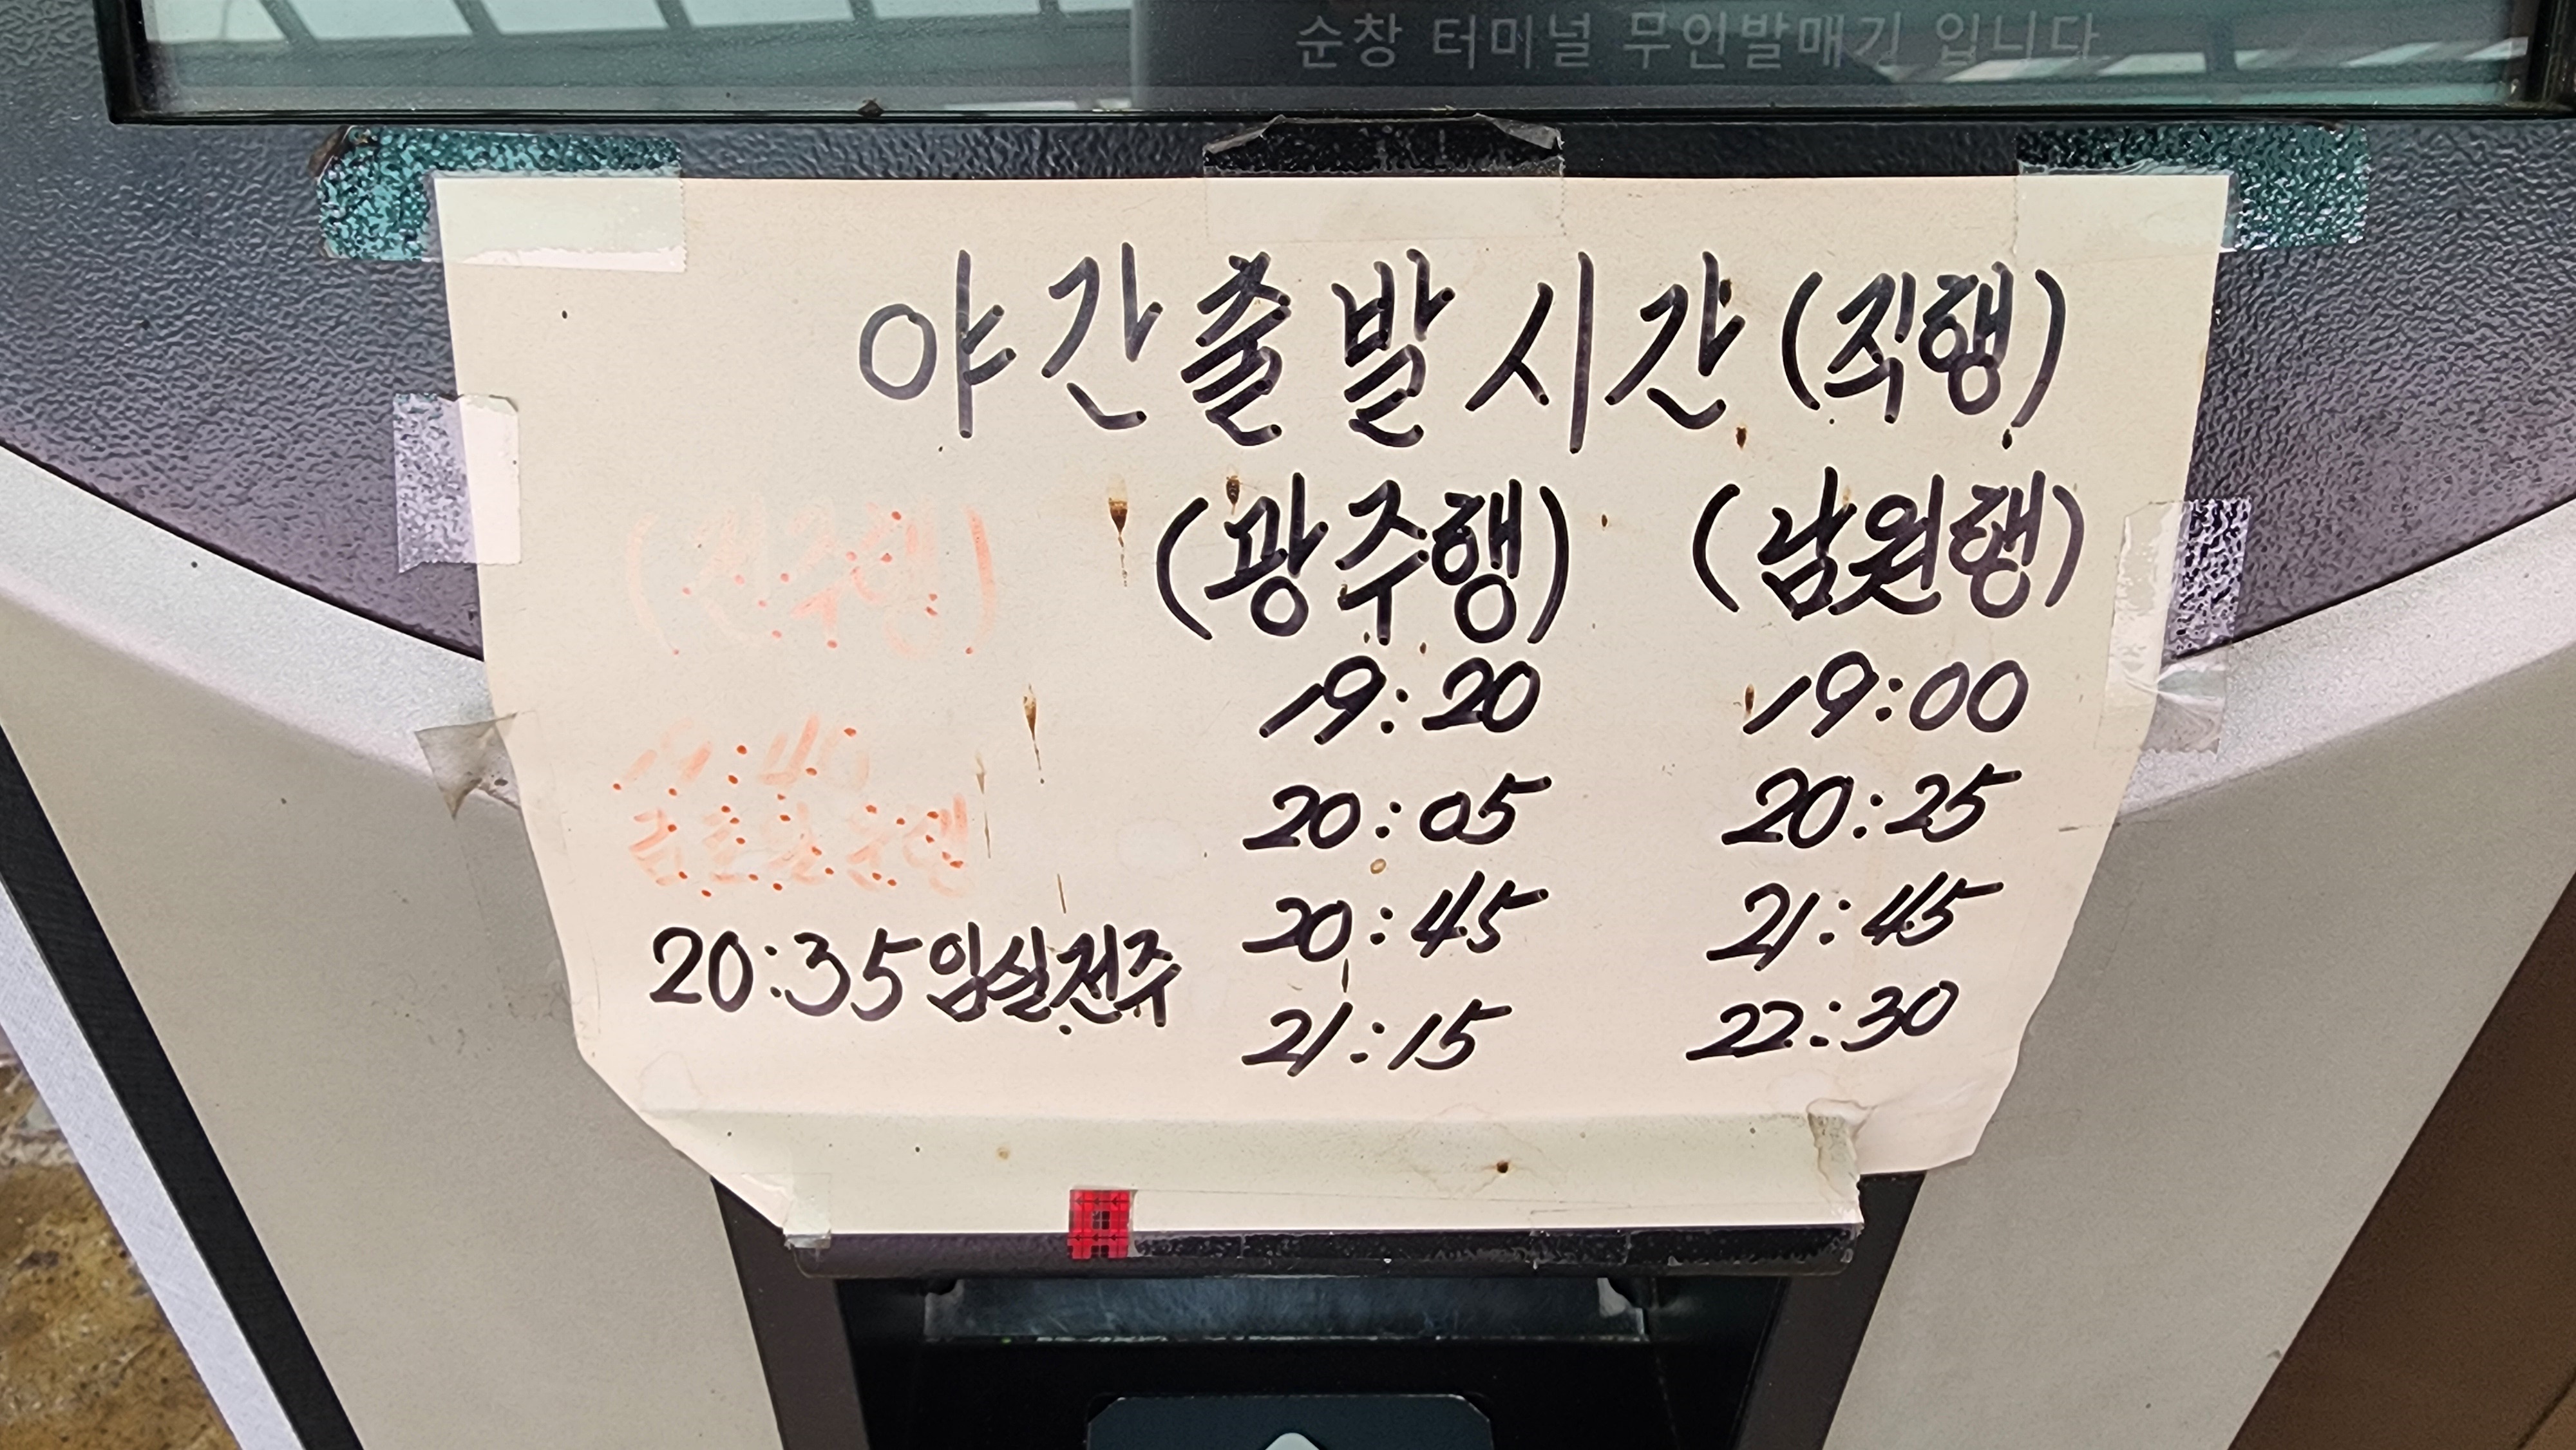 순창 터미널 무인발매기 입니다
야간출발시간(직행)
(전주행) (광주행) (남원행)
19:20 19:00
19:40 20:05 20:25
20:45 21:45
20:35 임실전주 21:15 22:30